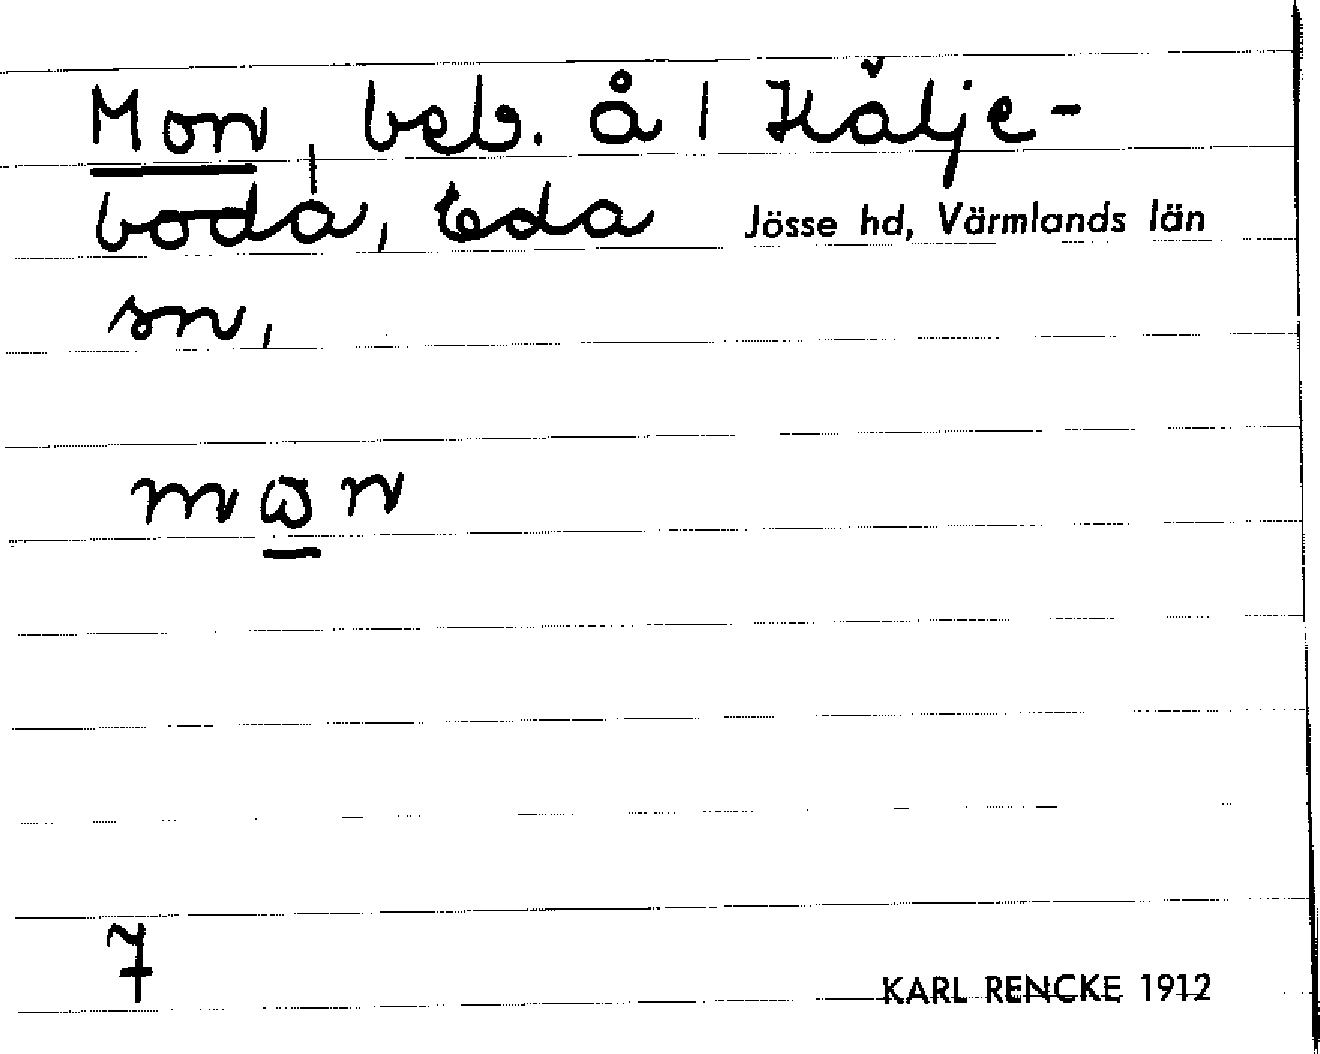 Mon, beb. å 1 Hälje-
boda, Eda Jösse hd, Värmlands län
sn,
mɷn
7
KARL RENCKE 1912